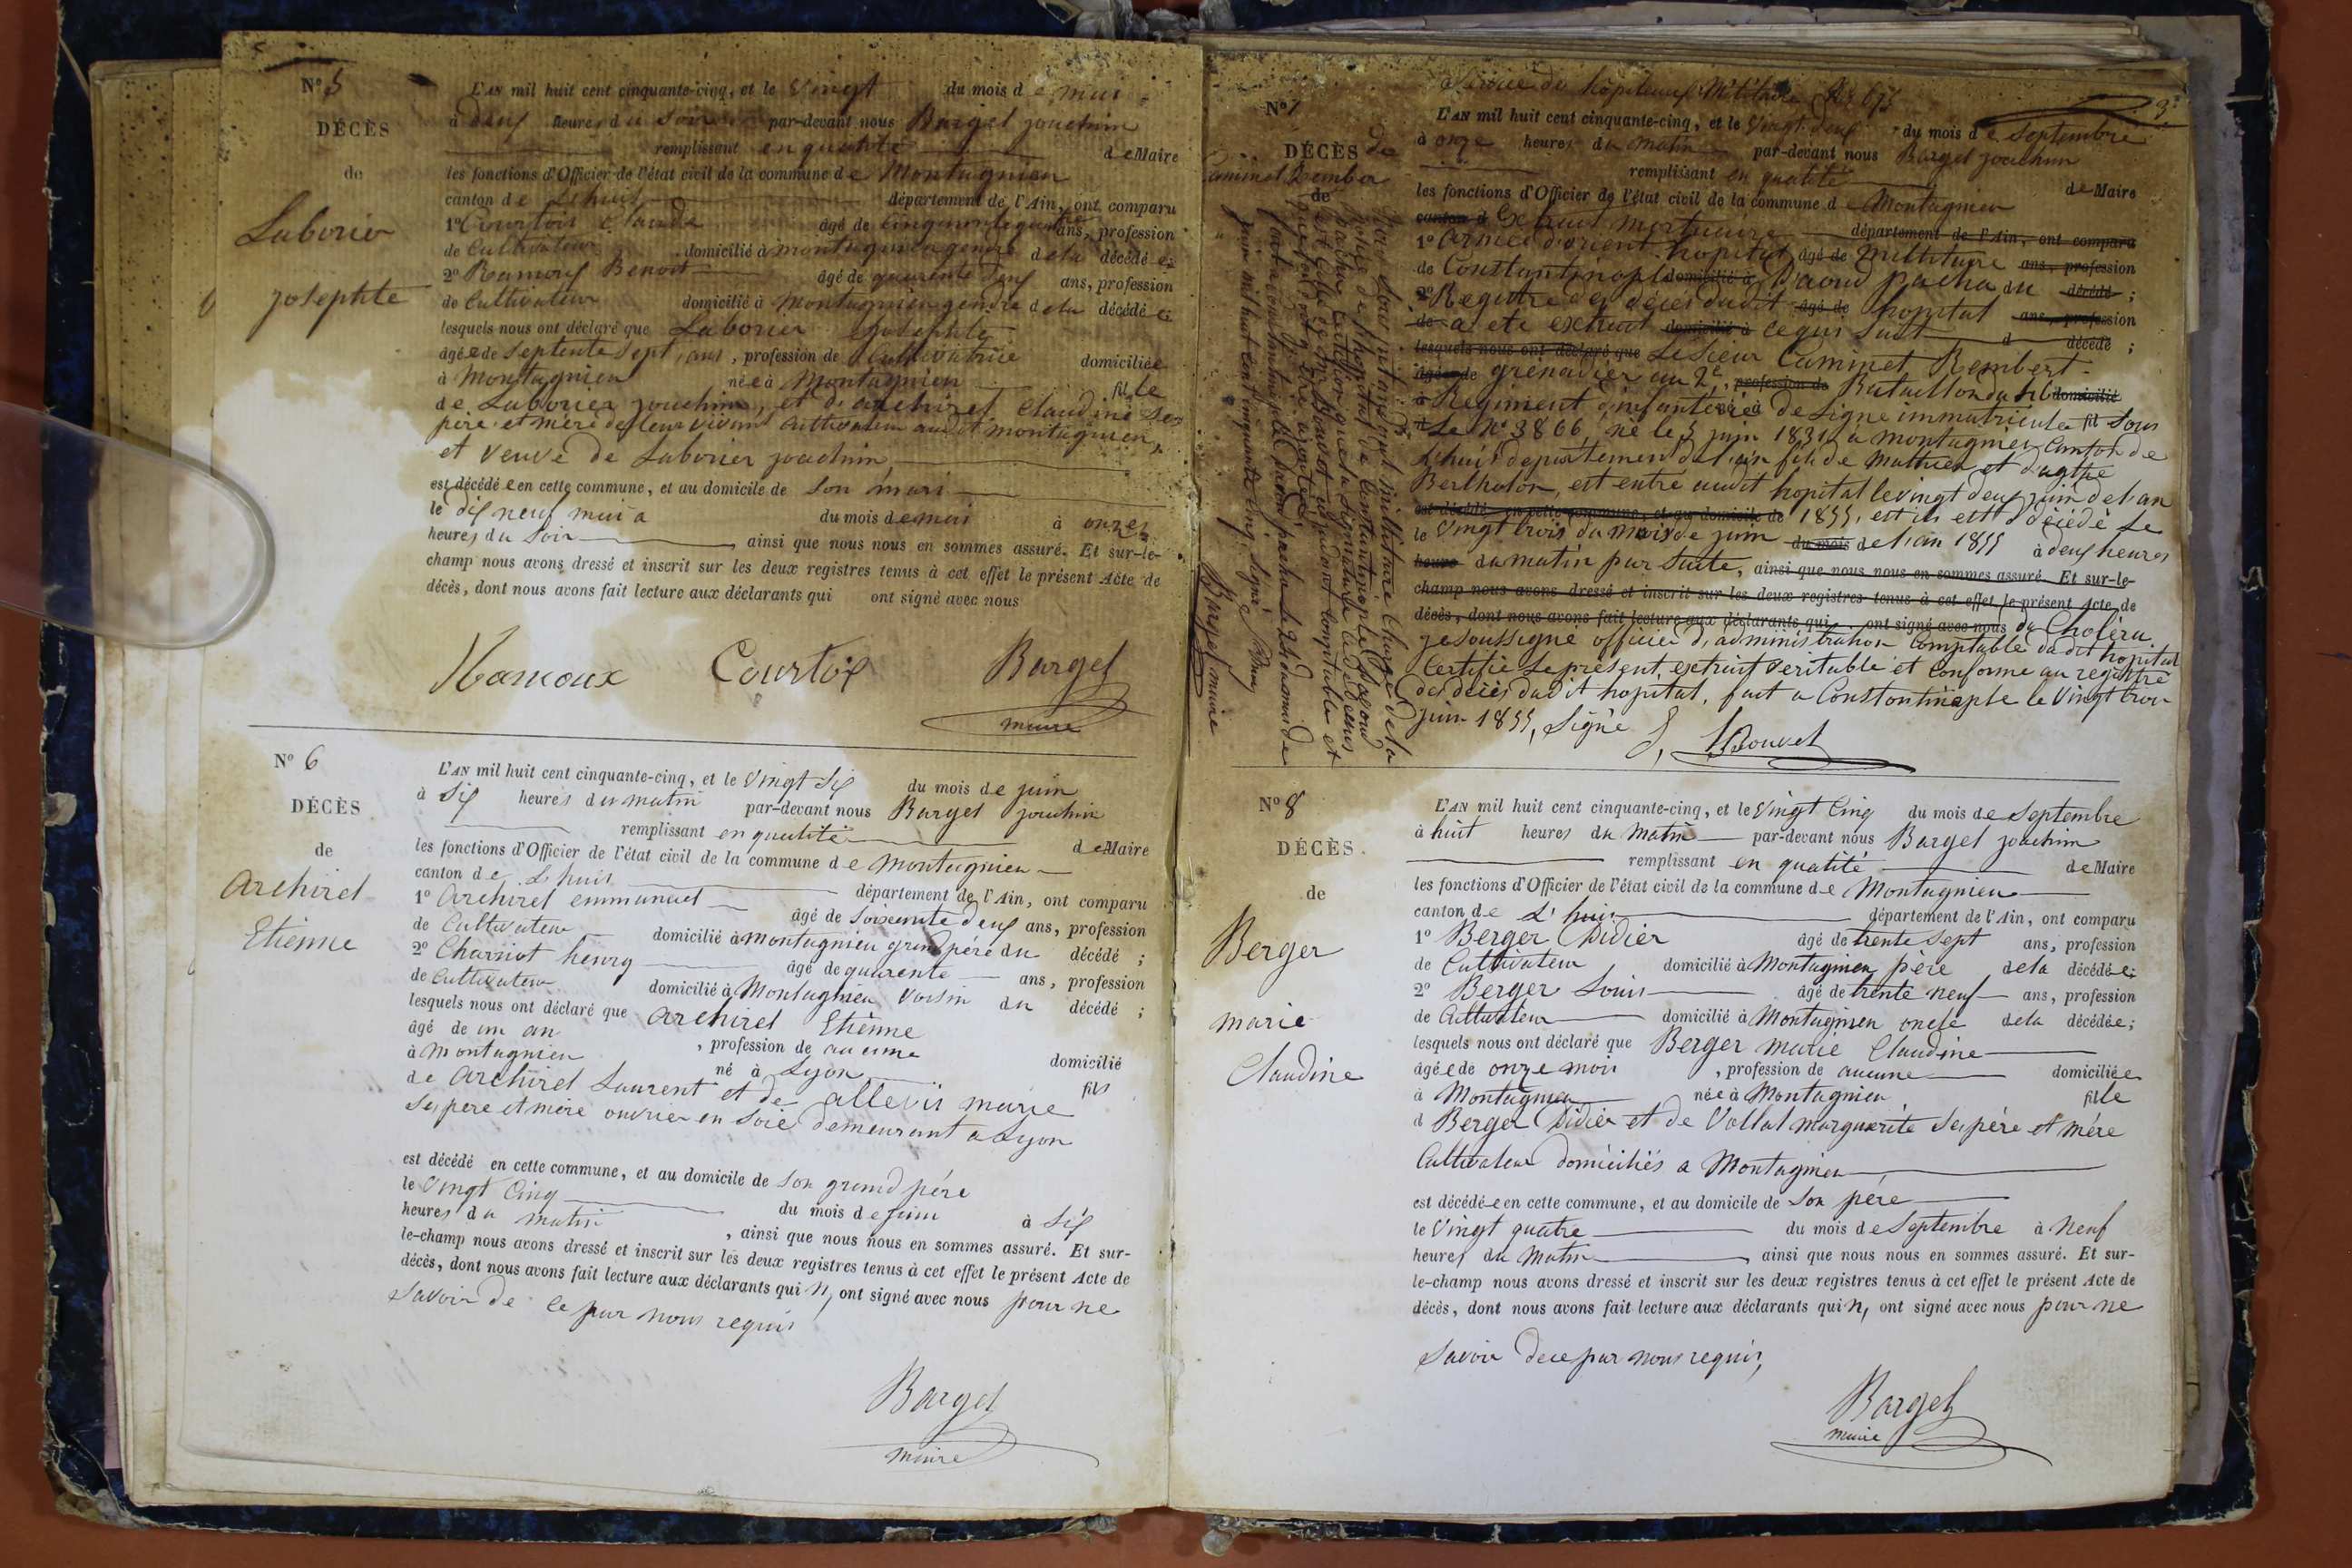 N° 5
DÉCÈS
de
Laborier
Josephte
L'AN mil huit cent cinquante-cinq, et le Vingt du mois de mai
à deux heures du Soir par-devant nous Barget joachim
remplissant en qualité de Maire
les fonctions d'Officier de l'état civil de la commune de Montagnieu
canton de Lhuis département de l'Ain, ont comparu
1° Courtois Claude âgé de ans, profession
de Cultivateur domicilié à montagnieu gendre dela décédée;
2° Ramoux Benoit âgé de quarente deux ans, profession
de Cultivateur domicilié à Montagnieu gendre dela décédée
lesquels nous ont déclaré que Laborier Josephte
âgée de Septente Sept ans, profession de Cultivatrice domiciliée
à Montagnieu née à Montagnieu fille
de Laborier joachim, et d'archirel Claudine Ses
père et mère de leur vivant Cultivateur audit montagnieu,
et veuve de Laborier joachim,
est décédée en cette commune, et au domicile de Son mari
le dix neuf mai a du mois de mai à onzes
heures du Soir ainsi que nous nous en sommes assuré. Et sur-le-
champ nous avons dressé et inscrit sur les deux registres tenus à cet effet le présent Acte de
décès, dont nous avons fait lecture aux déclarants qui ont signé avec nous
Ramoux Courtois Barget
maire
N° 6
DÉCÈS
de
Archirel
Etienne
L'AN mil huit cent cinquante-cinq, et le Vingt Six du mois de juin
à Six heures du matin par-devant nous Barget joachim
remplissant en qualité de Maire
les fonctions d'Officier de l'état civil de la commune de montagnieu
canton de Lhuis département de l'Ain, ont comparu
1° Archirel emmanuel âgé de Soixente deux ans, profession
de Cultivateur domicilié à montagnieu grand père du décédé ;
2° Charriot henry âgé de quarente ans, profession
de Cultivateur domicilié à Montagnieu voisin du décédé ;
lesquels nous ont déclaré que Archirel Etienne
âgé de un an, profession de aucune domicilié
à montagnieu né à Lyon fils
de Archirel Laurent et de marie
Ses pere et mère ouvrier en Soie demeurant a Lyon
est décédé en cette commune, et au domicile de Son grand père
le Vingt Cinq du mois de juin à Six
heures du matin, ainsi que nous nous en sommes assuré. Et sur-
le-champ nous avons dressé et inscrit sur les deux registres tenus à cet effet le présent Acte de
décès, dont nous avons fait lecture aux déclarants qui n, ont signé avec nous pour ne
Savoir de ce par nous requis
Barget
maire
Service de hôpiteaux Militaire N°
3
N° 7
DÉCÈS de
Caminet Rembert
de
L'AN mil huit cent cinquante-cinq, et le Vingt deux du mois de Septembre
à onze heures du matin par-devant nous Barget joachim
remplissant en qualité de Maire
les fonctions d'Officier de l'état civil de la commune de Montagnieu
canton d Extrait mortuaire département de l'Ain, ont comparu
1° Armée d'orient hopital âgé de Millitaire ans, profession
de Constantinople domicilié à D'aoud pacha du décédé ;
2° Registre des décès dudit âgé de hopital ans, profession
de a ete extrait domicilié à ce qui Suit d décédé ;
lesquels nous ont déclaré que Le Sieur Caminet Rembert
âgé de grenadier au 2e, profession de Bataillon du domicilié
à Regiment d'infanterie né à de Ligne immatriculé fil Sous
d Le N° 3866, né le 5 juin 1831, a montagnieu Canton de
Lhuis departement de l'ain fils de Mathieu et d'agthe
Bertholon, est entré audit hopital le vingt deux juin de l'an
est décédé en cette commune, et au domicile de 1855, est décédé Le
le Vingt trois du mois de juin du mois de l'an 1855 à deux heures
heures du matin par Suite, ainsi que nous nous en sommes assuré. Et sur-le-
champ nous avons dressé et inscrit sur les deux registres tenus à cet effet le présent Acte de
décès, dont nous avons fait lecture aux déclarants qui ont signé avec nous du Choléra
je soussigné officier d, administration Comptable dudit hopital
Certifie Le présent, extrait veritable et Conforme au registre
des décès dudit hopital, fait a Constantinople le Vingt trois
juin 1855, Signé
Nous Sous intendant millitaire Chargé de la
police de l'hopital de Constantinople Daoud
Barget maire
N° 8
DÉCÈS
de
Berger
marie
Claudine
L'AN mil huit cent cinquante-cinq, et le Vingt Cinq du mois de Septembre
à huit heures du Matin par-devant nous Barget joachim
remplissant en qualité de Maire
les fonctions d'Officier de l'état civil de la commune de Montagnieu
canton de L'huis département de l'Ain, ont comparu
1° Berger Didier âgé de trente Sept ans, profession
de Cultivateur domicilié à Montagnieu père dela décédée;
2° Berger Louis âgé de trente neuf ans, profession
de Cultivateur domicilié à Montagnieu oncle dela décédée;
lesquels nous ont déclaré que Berger marie Claudine
âgée de onze mois, profession de aucune domiciliée
à Montagnieu née à Montagnieu fille
d Berger Didier et de Vallat marguerite Ses père et mère
Cultivateur domiciliés a Montagnieu
est décédée en cette commune, et au domicile de Son père
le Vingt quatre du mois de Septembre à Neuf
heures du Matin ainsi que nous nous en sommes assuré. Et sur-
le-champ nous avons dressé et inscrit sur les deux registres tenus à cet effet le présent Acte de
décès, dont nous avons fait lecture aux déclarants qui n, ont signé avec nous pour ne
Savoir de ce par nous requis,
Barget
maire